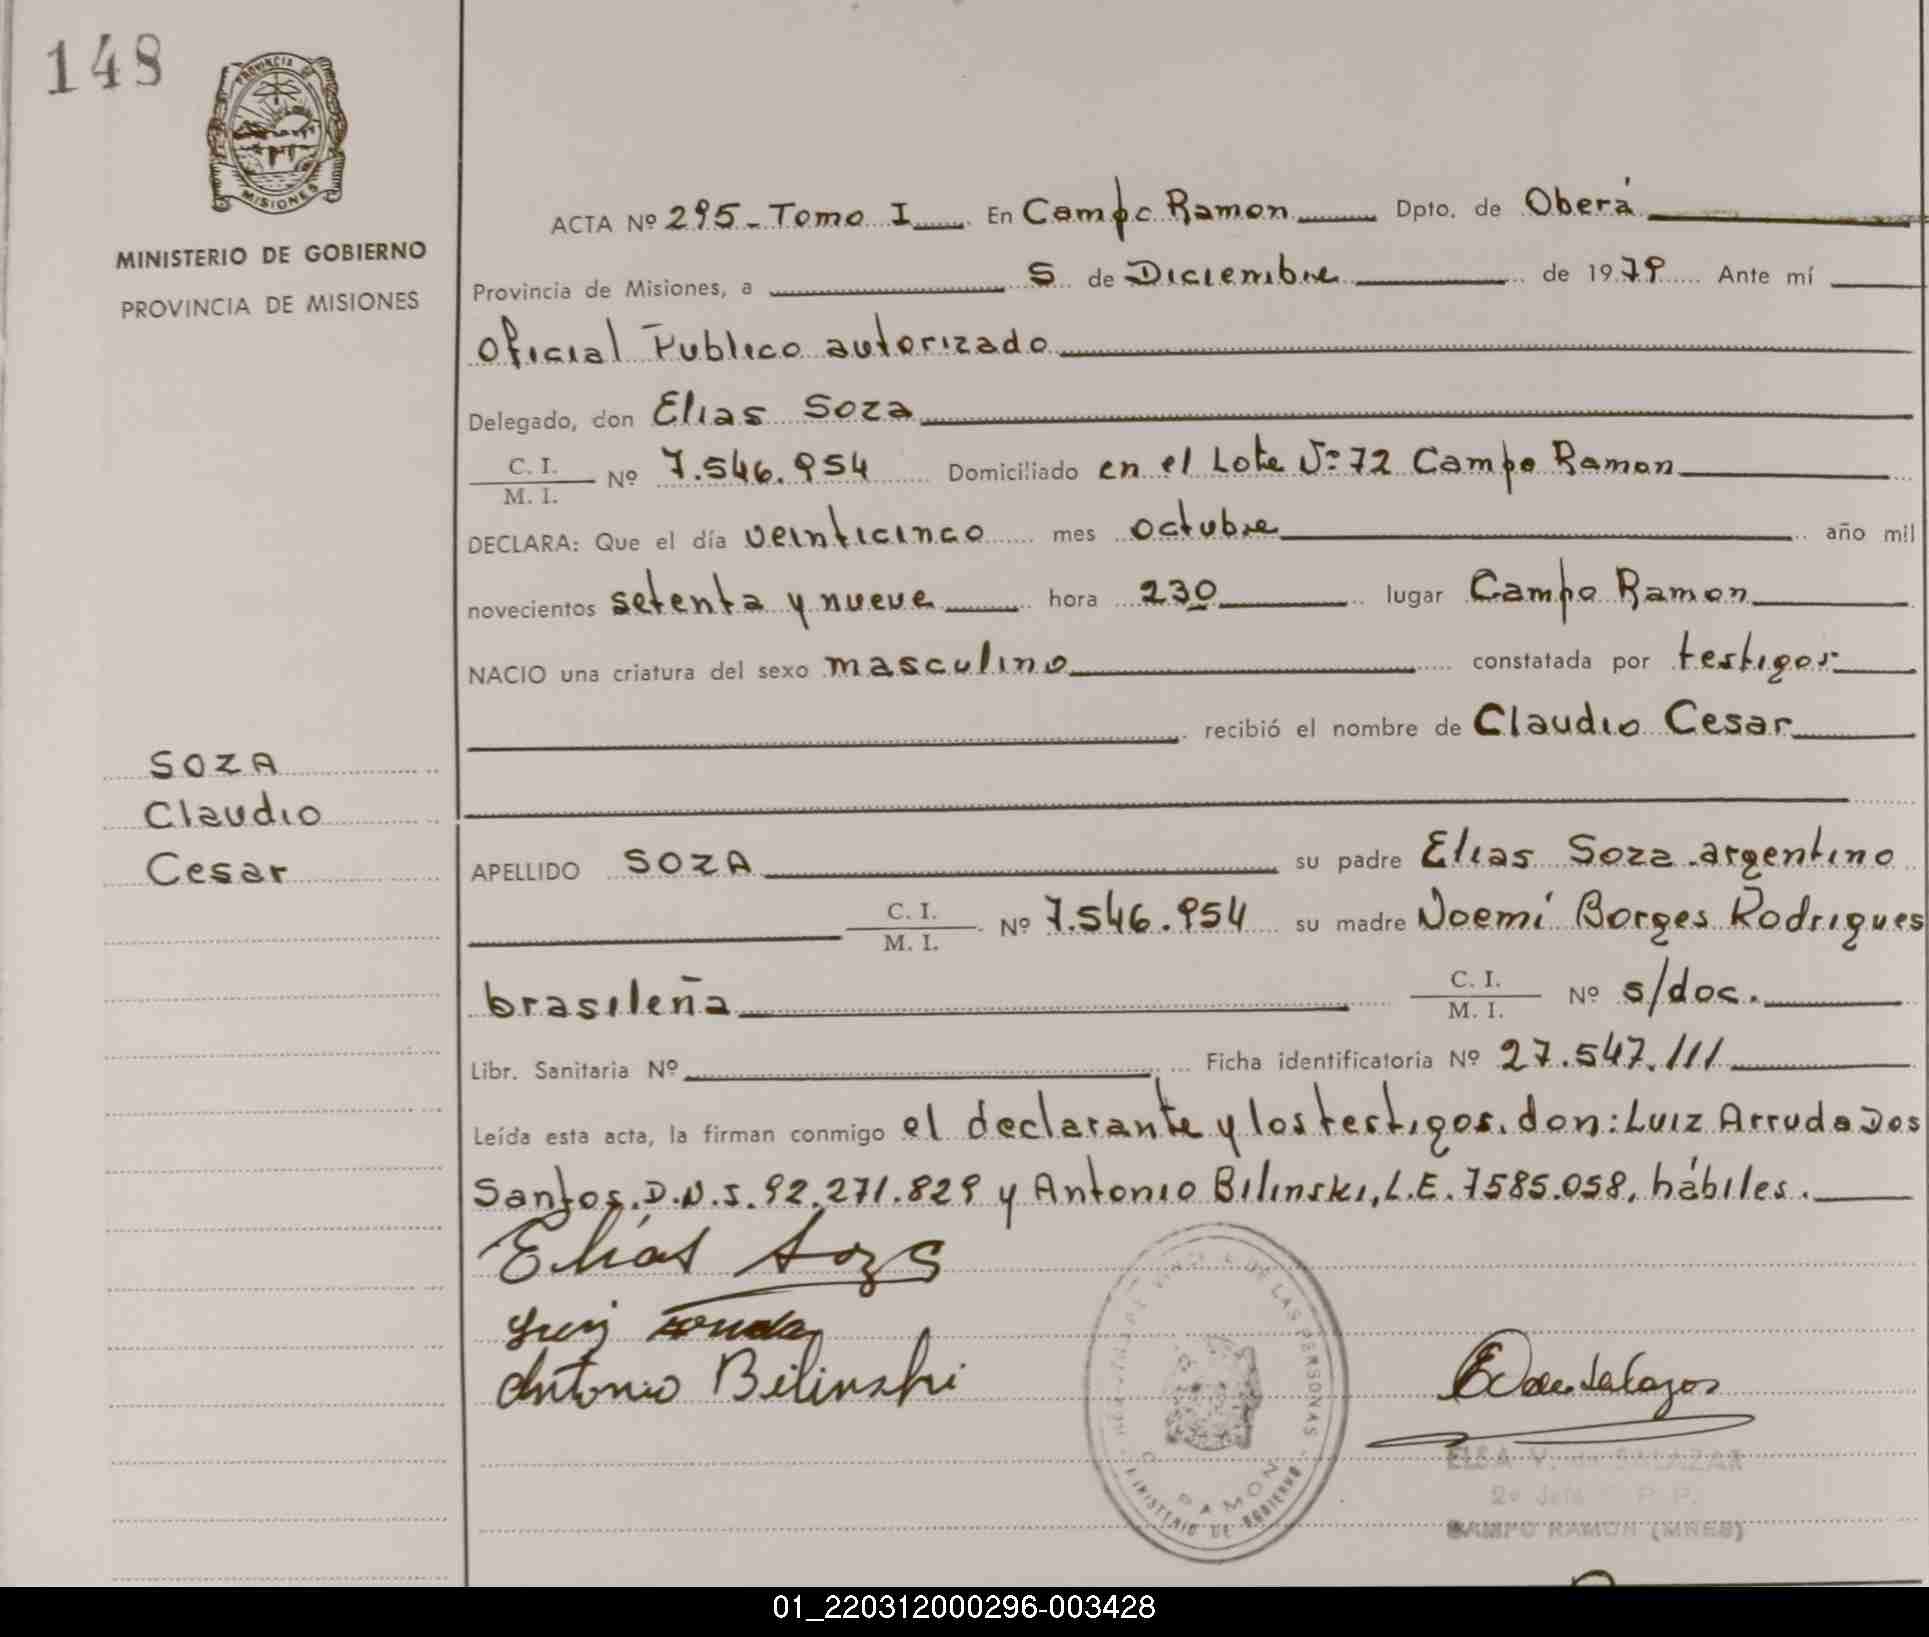 148
PROVINCIA DE
MISIONES
MINISTERIO DE GOBIERNO
PROVINCIA DE MISIONES
ACTA Nº 295 - Tomo I En Campo Ramon Dpto. de Oberá
Provincia de Misiones, a 5 de Diciembre de 1979 Ante mí
Oficial Publico autorizado
Delegado, don Elias Soza
C. I.
M. I. Nº 7.546.954 Domiciliado en el Lote Nº 72 Campo Ramon
DECLARA: Que el día veinticinco mes octubre año mil
novecientos setenta y nueve hora 230 lugar Campo Ramon
NACIO una criatura del sexo masculino constatada por testigos
recibió el nombre de Claudio Cesar
SOZA
Claudio
Cesar
APELLIDO SOZA su padre Elias Soza argentino
C. I.
M. I. Nº 7.546.954 su madre Noemí Borges Rodrigues
brasileña C. I.
M. I. Nº s/doc.
Libr. Sanitaria Nº Ficha identificatoria Nº 27.547.111
Leída esta acta, la firman conmigo el declarante y los testigos, don: Luiz Arruda Dos
Santos, D.N.I. 92.271.829 y Antonio Bilinski, L.E. 7585.058, hábiles.
Elías Soza
Antonio Bilinski
DE LAS PERSONAS
C. RAMON
MINISTERIO DE GOBIERNO
ELSA V. de SALAZAR
2º Jefe P. P.
CAMPO RAMON (MNES)
01_220312000296-003428